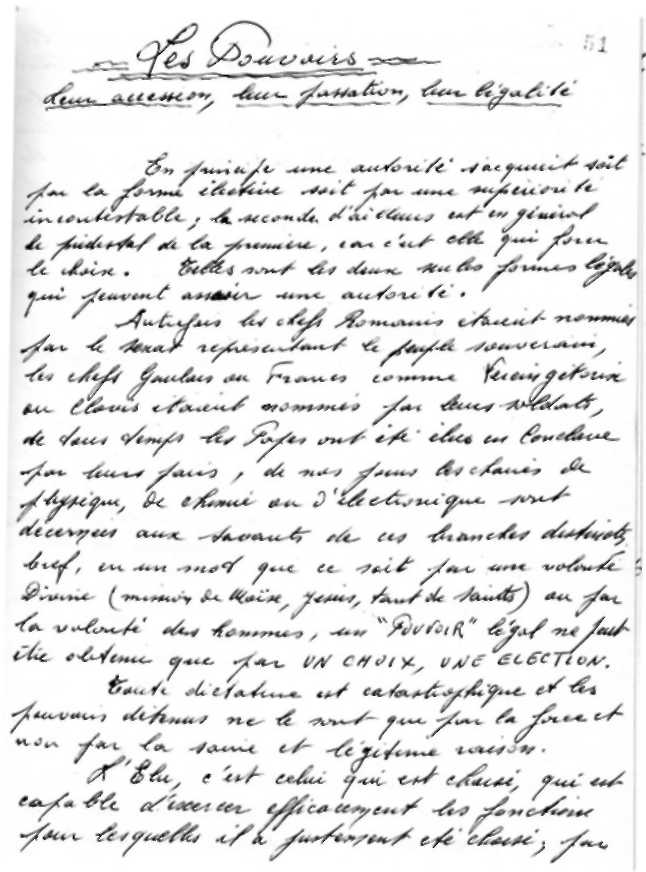 51
Les Pouvoirs
Leur accession, leur passation, leur légalité
En principe une autorité s'acquiert soit
par la forme élective soit par une supériorité
incontestable ; la seconde d'ailleurs est en général
le piédestal de la première, car c'est elle qui force
le choix. Telles sont les deux seules formes légales
qui peuvent asseoir une autorité.
Autrefois les chefs Romains étaient nommés
par le senat représentant le peuple souverain,
les chefs Gaulois ou Francs comme Vercingétorix
ou Clovis étaient nommés par leurs soldats,
de tous temps les Papes ont été élus en Conclave
par leurs pairs, de nos jours les chaires de
physique, de chimie ou d'électronique sont
décernées aux savants de ces branches distinctes,
bref, en un mot que ce soit par une volonté
Divine (mission de Moïse, Jésus, tant de Saints) ou par
la volonté des hommes, un "POUVOIR" légal ne peut
être obtenu que par UN CHOIX, UNE ELECTION.
Toute dictature est catastrophique et les
pouvoirs détenus ne le sont que par la force et
non par la saine et légitime raison.
L'Elu, c'est celui qui est choisi, qui est
capable d'exercer efficacement les fonctions
pour lesquelles il a justement été choisi ; par